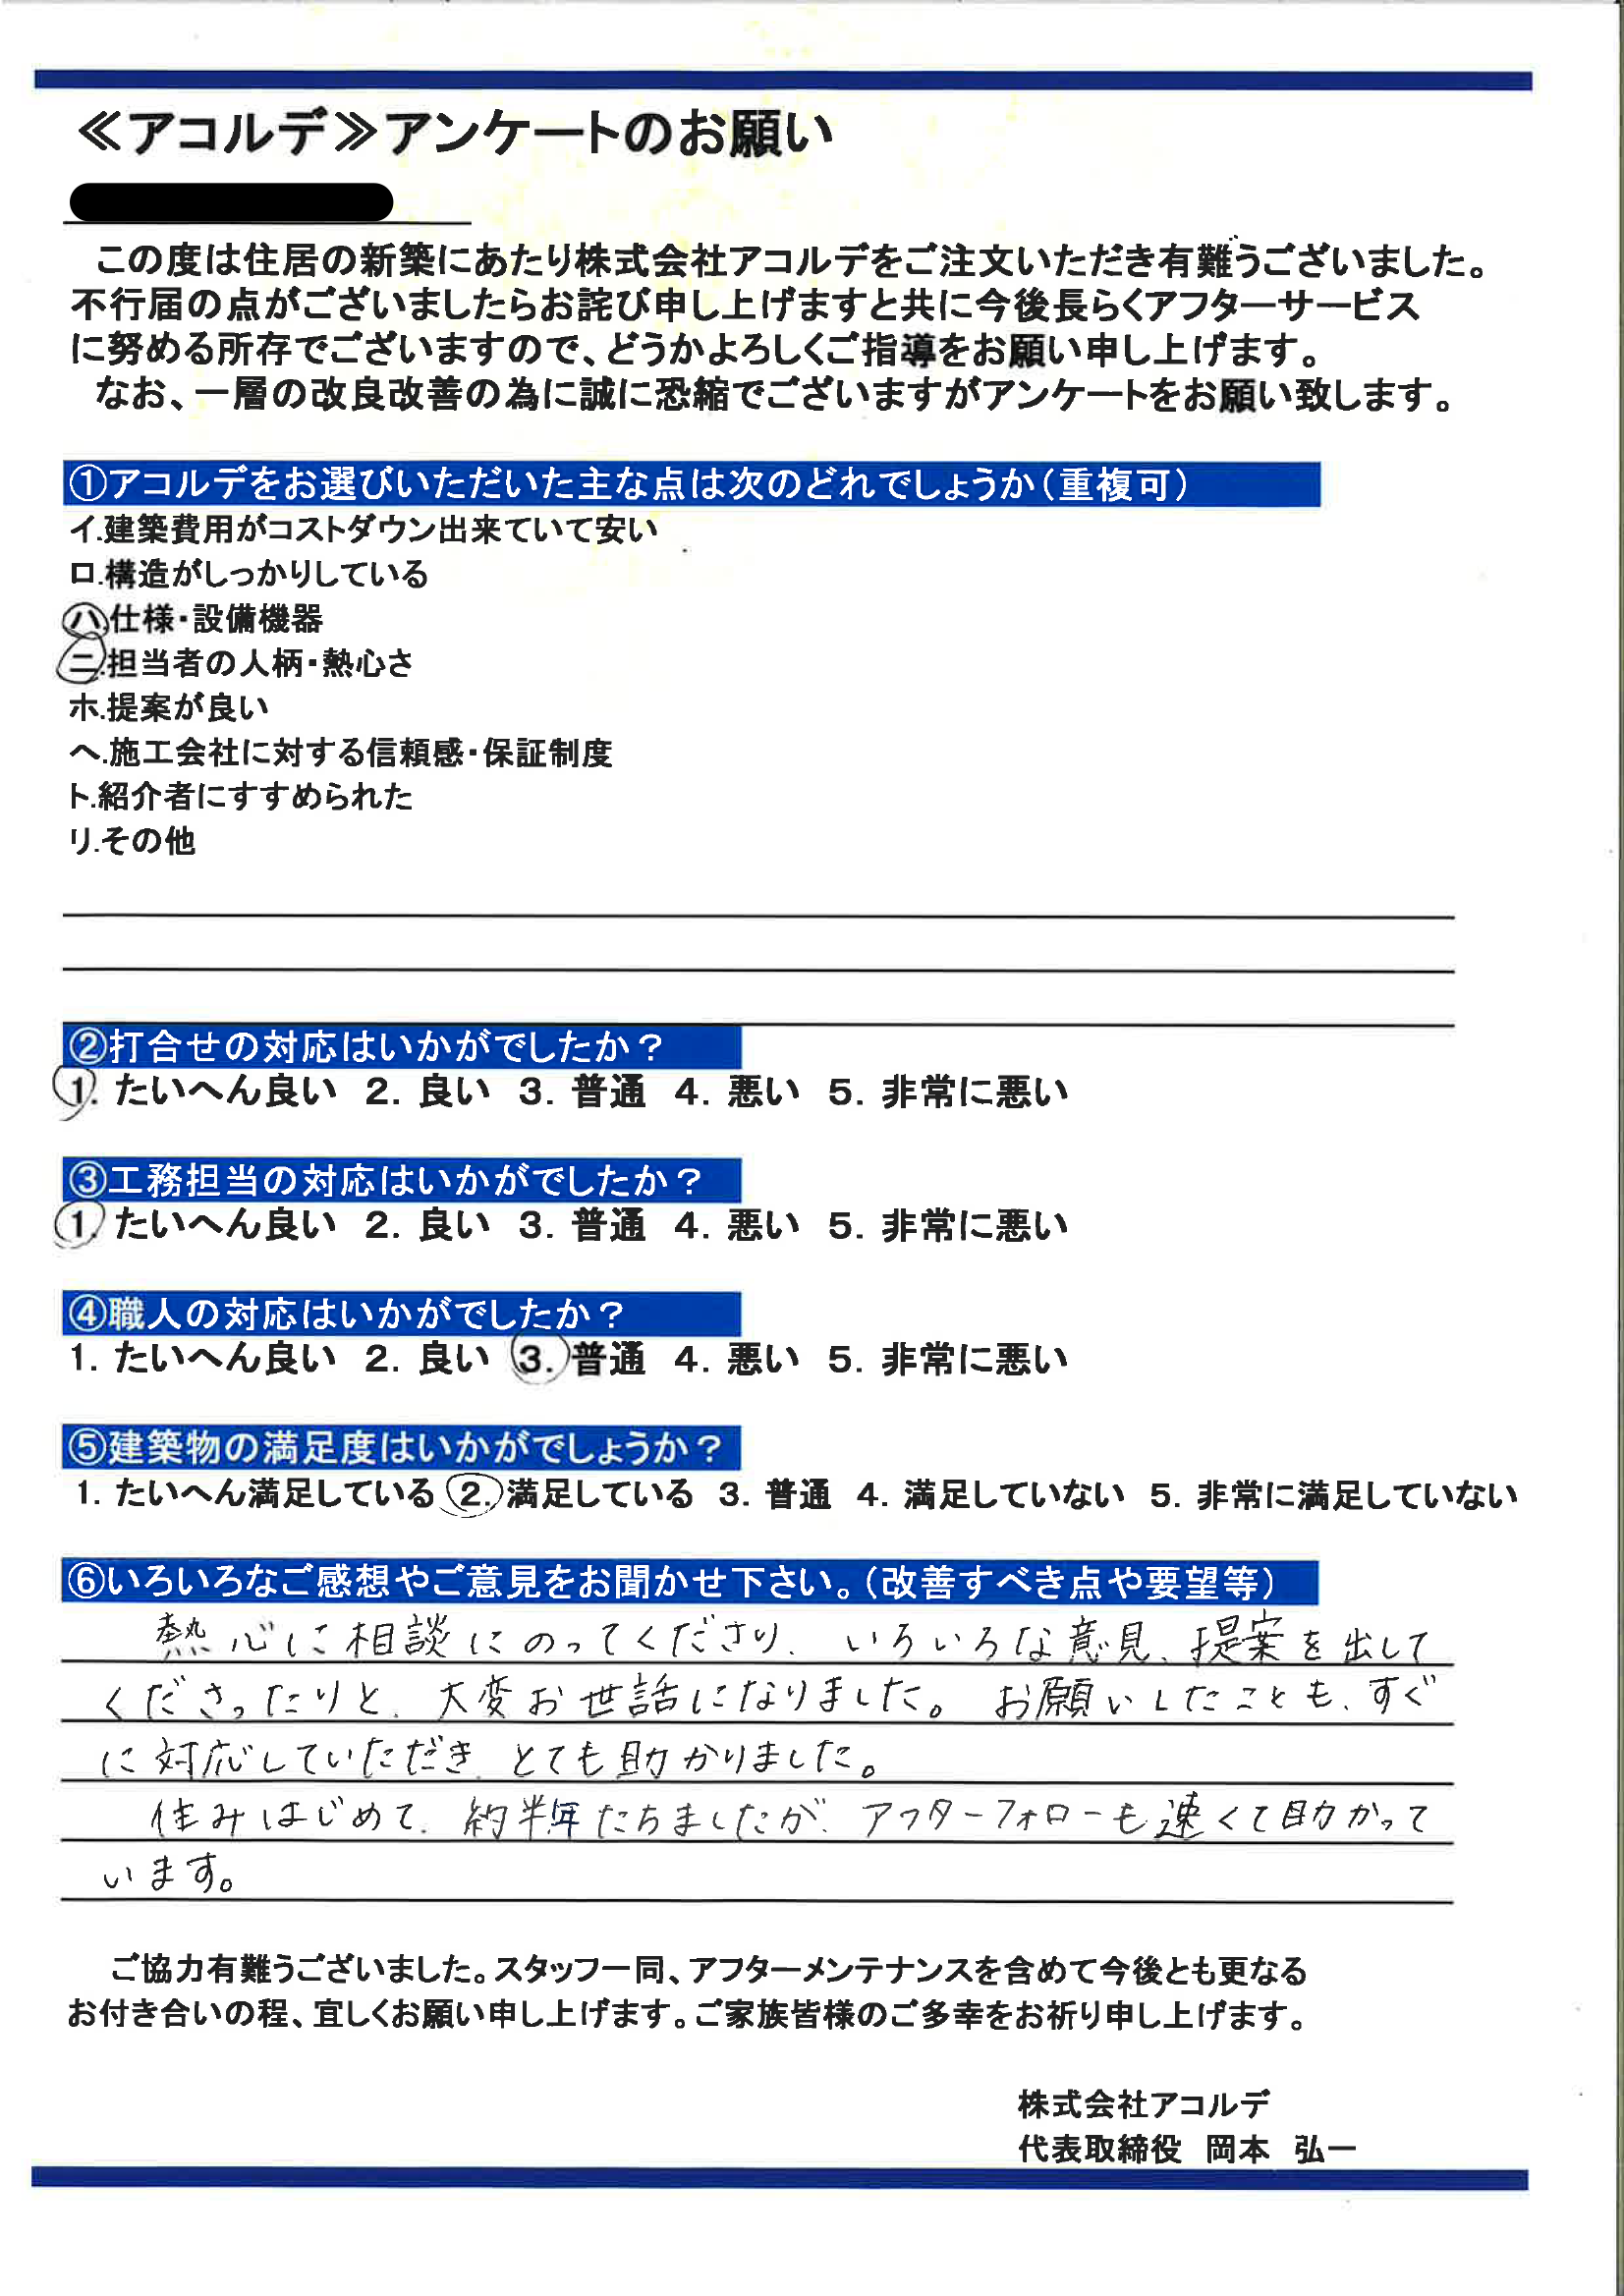 ≪アコルデ≫アンケートのお願い
この度は住居の新築にあたり株式会社アコルデをご注文いただき有難うございました。
不行届の点がございましたらお詫び申し上げますと共に今後長らくアフターサービス
に努める所存でございますので、どうかよろしくご指導をお願い申し上げます。
なお、一層の改良改善の為に誠に恐縮でございますがアンケートをお願い致します。
①アコルデをお選びいただいた主な点は次のどれでしょうか(重複可)
イ.建築費用がコストダウン出来ていて安い
ロ.構造がしっかりしている
ハ.仕様・設備機器
ニ.担当者の人柄・熱心さ
ホ.提案が良い
ヘ.施工会社に対する信頼感・保証制度
ト.紹介者にすすめられた
リ.その他
②打合せの対応はいかがでしたか？
1. たいへん良い 2. 良い 3. 普通 4. 悪い 5. 非常に悪い
③工務担当の対応はいかがでしたか？
1. たいへん良い 2. 良い 3. 普通 4. 悪い 5. 非常に悪い
④職人の対応はいかがでしたか？
1. たいへん良い 2. 良い 3. 普通 4. 悪い 5. 非常に悪い
⑤建築物の満足度はいかがでしょうか？
1. たいへん満足している 2. 満足している 3. 普通 4. 満足していない 5. 非常に満足していない
⑥いろいろなご感想やご意見をお聞かせ下さい。(改善すべき点や要望等)
熱心に相談にのってくださり、いろいろな意見、提案を出して
くださったりと、大変お世話になりました。お願いしたことも、すぐ
に対応していただき、とても助かりました。
住みはじめて、約半年たちましたが、アフターフォローも速くて助かって
います。
ご協力有難うございました。スタッフ一同、アフターメンテナンスを含めて今後とも更なる
お付き合いの程、宜しくお願い申し上げます。ご家族皆様のご多幸をお祈り申し上げます。
株式会社アコルデ
代表取締役 岡本 弘一